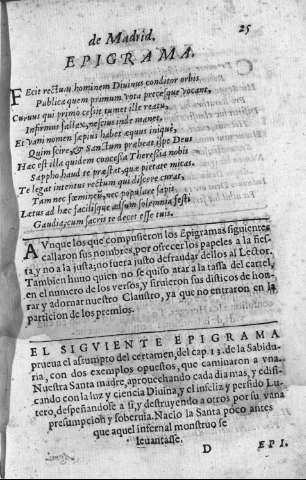 de Madrid. 25
EPIGRAMA.
FEcit rectum hominem Diuinus conditor orbis
Publica quem primum vota precesque vocant,
Curuus qui primo cessit tumet ille reatu,
Infirmus fallax, nescius inde manet,
Et vani nomen sapius habet aequus iniqué,
Quin scire, & Sanctum prabeat ipse Deus
Hac est illa quidem concessa Theressia nobis
Sappho haud te prastat, qua pietate micas.
Te legat intentus rectum qui discere curat,
Tam nec faemineum, nec populare sapit
Latus ad haec facilisque adsum solemnia festi
Gaudia, cum sacris te decet esse tuis.
AVnque los que compusieron los Epigramas siguientes
callaron sus nombres, por ofrecer los papeles a la fies-
ta, y no a la justa; no fuera justo defraudar dellos al Lector.
Tambien huuo quien no se quiso atar a la tassa del cartel,
en el numero de los versos, y siruieron sus disticos de hon-
rar y adornar nuestro Claustro, ya que no entraron en la
particion de los premios.
EL SIGVIENTE EPIGRAMA
prueua el assumpto del certamen, del cap. 13. de la Sabidu-
ria, con dos exemplos opuestos, que caminaron a vna.
Nuestra Santa madre, aprouechando cada dia mas, y edifi-
cando con la luz y ciencia Diuina, y el infeliz y perfido Lu-
tero, despeñandose a si, y destruyendo a otros por su vana
presumpcion y soberuia. Nacio la Santa poco antes
que aquel infernal monstruo se
leuantasse.
D EPI.